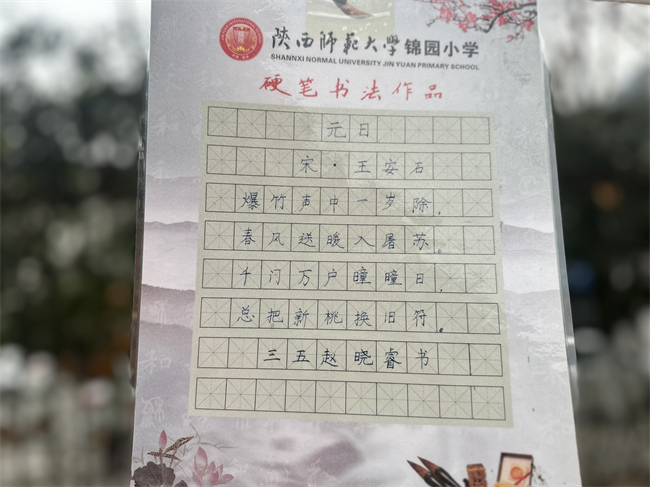 陕西师范大学锦园小学
SHANNXI NORMAL UNIVERSITY JIN YUAN PRIMARY SCHOOL
硬笔书法作品
元日
宋·王安石
爆竹声中一岁除,
春风送暖入屠苏。
千门万户瞳瞳日,
总把新桃换旧符。
三五赵晓睿书